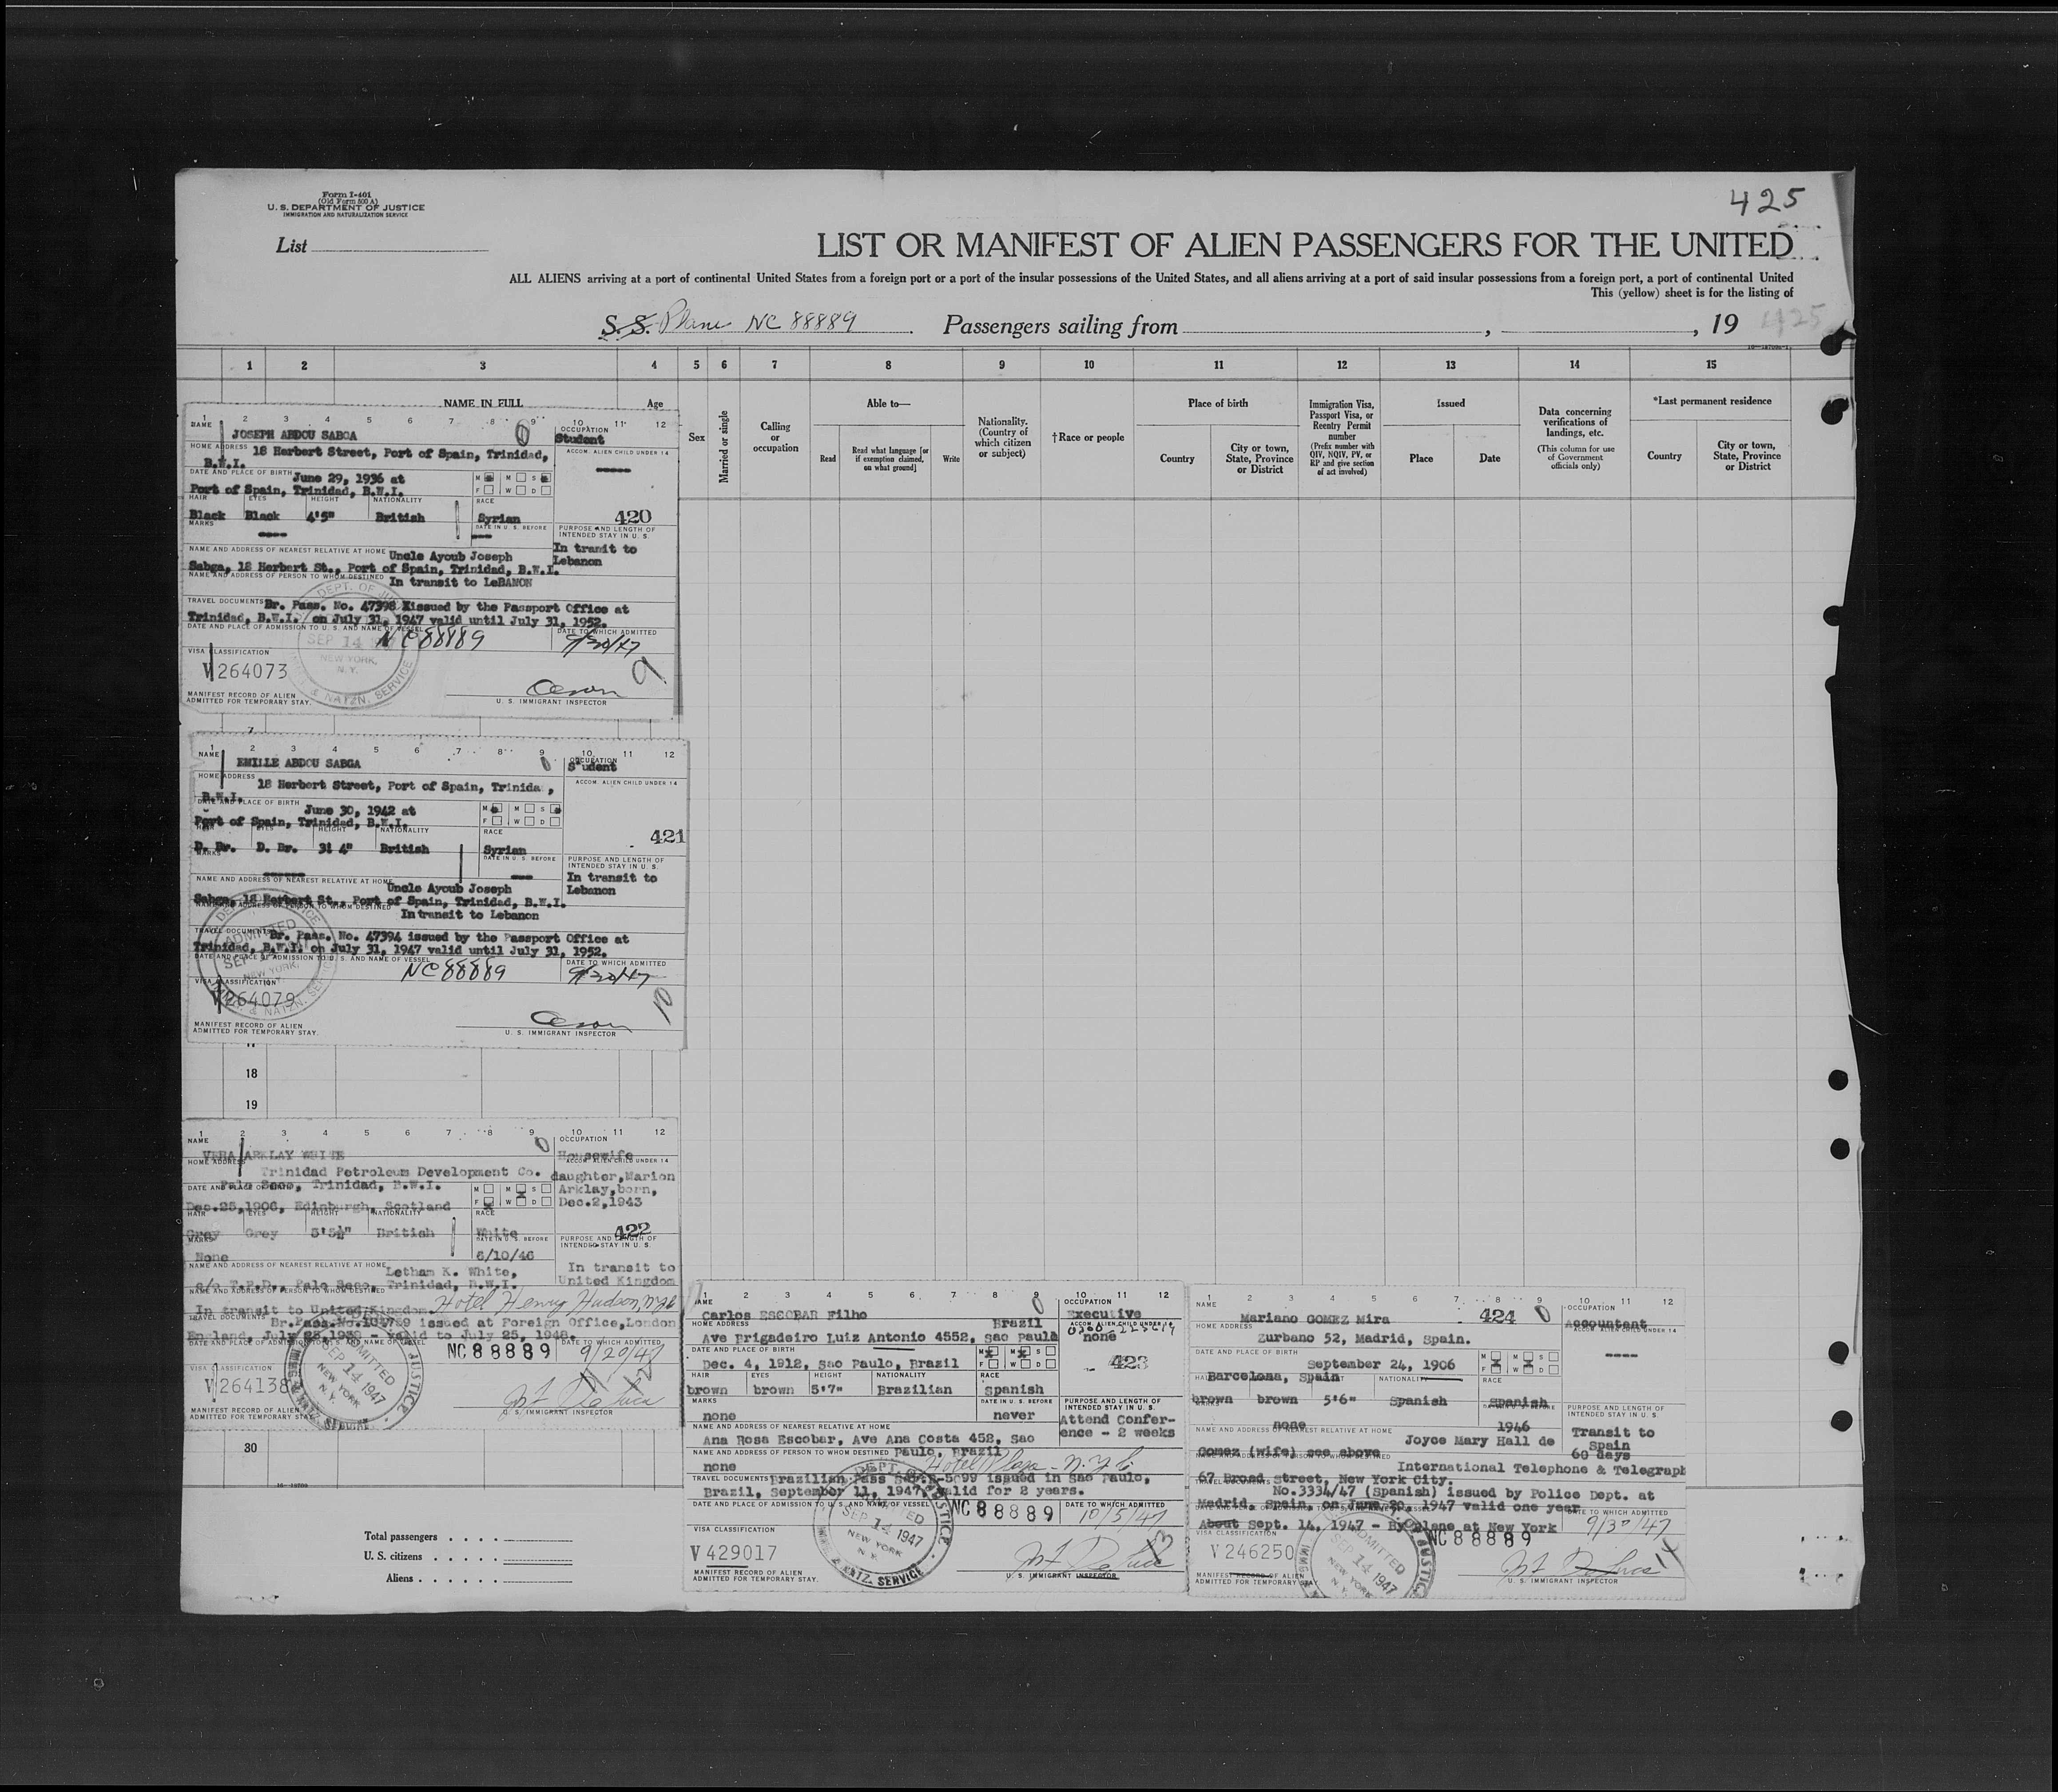 Form I-401
(Old Form 500 A)
U. S. DEPARTMENT OF JUSTICE
IMMIGRATION AND NATURALIZATION SERVICE
425
List
LIST OR MANIFEST OF ALIEN PASSENGERS FOR THE UNITED
ALL ALIENS arriving at a port of continental United States from a foreign port or a port of the insular possessions of the United States, and all aliens arriving at a port of said insular possessions from a foreign port, a port of continental United
This (yellow) sheet is for the listing of
S. S. Plane NC 88889 Passengers sailing from , , 19
1 2 3 4 5 6 7 8 9 10 11 12 13 14 15
NAME IN FULL
Age
Sex
Married or single
Calling
or
occupation
Able to—
Read
Read what language [or
if exemption claimed,
on what ground]
Write
Nationality.
(Country of
which citizen
or subject)
†Race or people
Place of birth
Country
City or town,
State, Province
or District
Immigration Visa,
Passport Visa, or
Reentry Permit
number
(Prefix number with
QIV, NQIV, PV, or
RP and give section
of act involved)
Issued
Place
Date
Data concerning
verifications of
landings, etc.
(This column for use
of Government
officials only)
*Last permanent residence
Country
City or town,
State, Province
or District
1 2 3 4 5 6 7 8 9 10 11 12
NAME
JOSEPH ABDOU SABGA
OCCUPATION
Student
HOME ADDRESS 18 Herbert Street, Port of Spain, Trinidad,
B.W.I.
ACCOM. ALIEN CHILD UNDER 14
DATE AND PLACE OF BIRTH June 29, 1936 at
Port of Spain, Trinidad, B.W.I.
M M S
F W D
HAIR EYES HEIGHT NATIONALITY RACE
Black Black 4'5" British Syrian
420
MARKS
DATE IN U. S. BEFORE
PURPOSE AND LENGTH OF
INTENDED STAY IN U. S.
In transit to
Lebanon
NAME AND ADDRESS OF NEAREST RELATIVE AT HOME Uncle Ayoub Joseph
Sabga, 18 Herbert St., Port of Spain, Trinidad, B.W.I.
NAME AND ADDRESS OF PERSON TO WHOM DESTINED In transit to LeBANON
TRAVEL DOCUMENTS Br. Pass. No. 47398 issued by the Passport Office at
Trinidad, B.W.I. on July 31, 1947 valid until July 31, 1952.
DATE AND PLACE OF ADMISSION TO U. S. AND NAME OF VESSEL
NC88889
DATE TO WHICH ADMITTED
9/20/47
SEP 14
NEW YORK,
N. Y.
VISA CLASSIFICATION
V 264073
9
MANIFEST RECORD OF ALIEN
ADMITTED FOR TEMPORARY STAY.
U. S. IMMIGRANT INSPECTOR
1 2 3 4 5 6 7 8 9 10 11 12
NAME
EMILLE ABDOU SABGA
OCCUPATION
Student
HOME ADDRESS
18 Herbert Street, Port of Spain, Trinida ,
B.W.I.
ACCOM. ALIEN CHILD UNDER 14
DATE AND PLACE OF BIRTH
June 30, 1942 at
Port of Spain, Trinidad, B.W.I.
M M S
F W D
HAIR EYES HEIGHT NATIONALITY RACE
421
D. Br. D. Br. 3' 4" British Syrian
MARKS
DATE IN U. S. BEFORE
PURPOSE AND LENGTH OF
INTENDED STAY IN U. S
In transit to
Lebanon
NAME AND ADDRESS OF NEAREST RELATIVE AT HOME
Uncle Ayoub Joseph
Sabga, 18 Herbert St., Port of Spain, Trinidad, B.W.I.
NAME AND ADDRESS OF PERSON TO WHOM DESTINED
In transit to Lebanon
TRAVEL DOCUMENTS Br. Pass. No. 47394 issued by the Passport Office at
Trinidad, B.W.I. on July 31, 1947 valid until July 31, 1952.
DATE AND PLACE OF ADMISSION TO U. S. AND NAME OF VESSEL
NC88889
DATE TO WHICH ADMITTED
9/20/47
ADMITTED
SEP
NEW YORK,
VISA CLASSIFICATION
V 264079
10
MANIFEST RECORD OF ALIEN
ADMITTED FOR TEMPORARY STAY.
U. S. IMMIGRANT INSPECTOR
18
19
1 2 3 4 5 6 7 8 9 10 11 12
NAME
VERA ARKLAY WHITE
OCCUPATION
Housewife
HOME ADDRESS
Trinidad Petroleum Development Co.
Palo Seco, Trinidad, B.W.I.
ACCOM. ALIEN CHILD UNDER 14
daughter,Marion
Arklay,born,
Dec.2,1943
DATE AND PLACE OF BIRTH
Dec.25,1906, Edinburgh, Scotland
M M S
F W D
HAIR EYES HEIGHT NATIONALITY RACE
Gray Grey 5'5½" British White
422
MARKS
None
DATE IN U. S. BEFORE
PURPOSE AND LENGTH OF
INTENDED STAY IN U. S.
In transit to
United Kingdom
NAME AND ADDRESS OF NEAREST RELATIVE AT HOME Letham K. White,
c/o T.P.D., Palo Seco, Trinidad, B.W.I.
NAME AND ADDRESS OF PERSON TO WHOM DESTINED
In transit to United Kingdom Hotel Henry Hudson, NYC
TRAVEL DOCUMENTS
issued at Foreign Office,London
England, July 25,1938 - valid to July 25, 1948.
DATE AND PLACE OF ADMISSION TO U. S. AND NAME OF VESSEL
NC 88889
DATE TO WHICH ADMITTED
9/20/47
ADMITTED
SEP 14 1947
NEW YORK
N. Y.
VISA CLASSIFICATION
V 264138
MANIFEST RECORD OF ALIEN
ADMITTED FOR TEMPORARY STAY
U. S. IMMIGRANT INSPECTOR
30
Total passengers
U. S. citizens
Aliens
1 2 3 4 5 6 7 8 9 10 11 12
NAME
Carlos ESCOBAR Filho
OCCUPATION
Executive
HOME ADDRESS Brazil
Ave Brigadeiro Luiz Antonio 4552, Sao Paulo
ACCOM. ALIEN CHILD UNDER 14
none
DATE AND PLACE OF BIRTH
Dec. 4, 1912, Sao Paulo, Brazil
M M S
F W D
423
HAIR EYES HEIGHT NATIONALITY RACE
brown brown 5'7" Brazilian spanish
MARKS
none
DATE IN U. S. BEFORE
never
PURPOSE AND LENGTH OF
INTENDED STAY IN U. S.
Attend Confer-
ence - 2 weeks
NAME AND ADDRESS OF NEAREST RELATIVE AT HOME
Ana Rosa Escobar, Ave Ana Costa 452, Sao
NAME AND ADDRESS OF PERSON TO WHOM DESTINED Paulo, Brazil
none Hotel Plaza - N.Y.C.
TRAVEL DOCUMENTS Brazilian Pass issued in Sao Paulo,
Brazil, September 11, 1947, valid for 2 years.
DATE AND PLACE OF ADMISSION TO U. S. AND NAME OF VESSEL
NC 88889
DATE TO WHICH ADMITTED
10/5/47
ADMITTED
SEP 14 1947
NEW YORK
N. Y.
VISA CLASSIFICATION
V 429017
13
MANIFEST RECORD OF ALIEN
ADMITTED FOR TEMPORARY STAY.
U. S. IMMIGRANT INSPECTOR
1 2 3 4 5 6 7 8 9 10 11 12
NAME
Mariano GOMEZ Mira
424
OCCUPATION
Accountant
HOME ADDRESS
Zurbano 52, Madrid, Spain.
ACCOM. ALIEN CHILD UNDER 14
DATE AND PLACE OF BIRTH
September 24, 1906
Barcelona, Spain
M M S
F W D
NATIONALITY
brown brown 5'6" Spanish Spanish
none 1946
PURPOSE AND LENGTH OF
INTENDED STAY IN U. S.
Transit to
Spain
60 days
NAME AND ADDRESS OF NEAREST RELATIVE AT HOME Joyce Mary Hall de
Gomez (wife) see above
International Telephone & Telegraph
67 Broad Street, New York City.
No.3334/47 (Spanish) issued by Police Dept. at
Madrid, Spain, on June 20, 1947 valid one year
DATE TO WHICH ADMITTED
About Sept. 14, 1947 - By plane at New York
9/30/47
VISA CLASSIFICATION
NC 88889
V 246250
ADMITTED
SEP 14 1947
NEW YORK
N. Y.
14
MANIFEST RECORD OF ALIEN
ADMITTED FOR TEMPORARY STAY
U. S. IMMIGRANT INSPECTOR